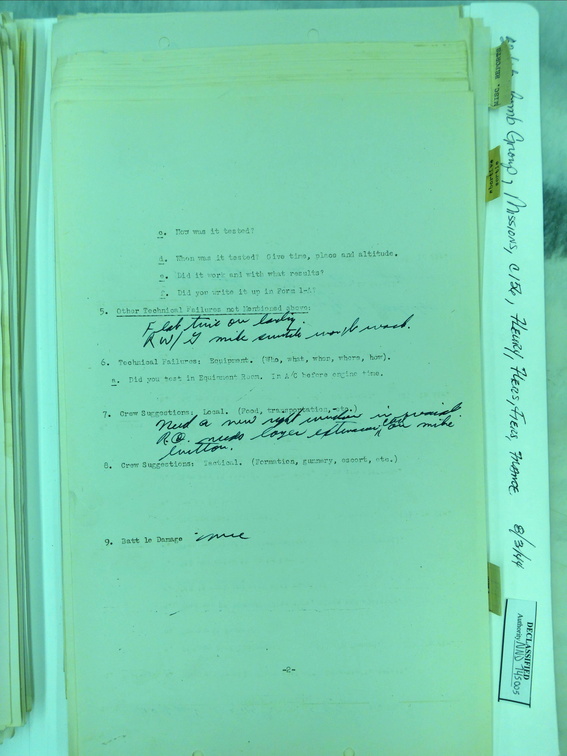 c. How was it tested?
d. When was it tested? Give time, place and altitude.
e. Did it work and with what results?
f. Did you write it up in Form 1-A?
5. Other Technical Failures not Mentioned above:
Flat tire on
R W/G mike switch won't work.
6. Technical Failures: Equipment. (Who, what, when, where, how).
a. Did you test in Equipment Room. In A/C before engine time.
7. Crew Suggestions: Local. (Food, transportation, etc.)
Need a new right window in
R.O. needs extension on mike
button.
8. Crew Suggestions: Tactical. (Formation, gunnery, escort, etc.)
9. Battle Damage
-2-
Bomb Group, Missions, FLEURY, FLERS, FRANCE 8/3/44
DECLASSIFIED
Authority NND 745005